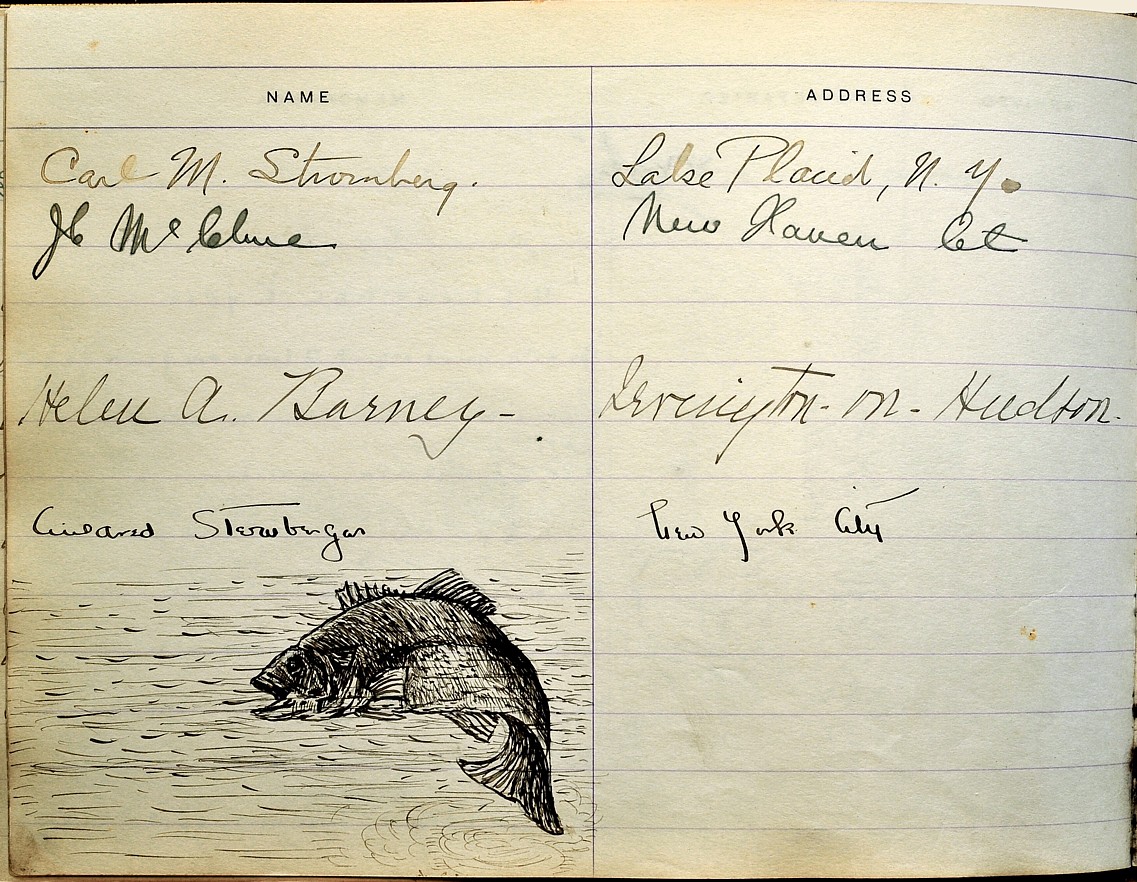 NAME ADDRESS
Carl M. Stromberg. Lake Placid, N. Y.
JC McClure New Haven Ct
Helen A. Barney - Irvington - on - Hudson.
New York City